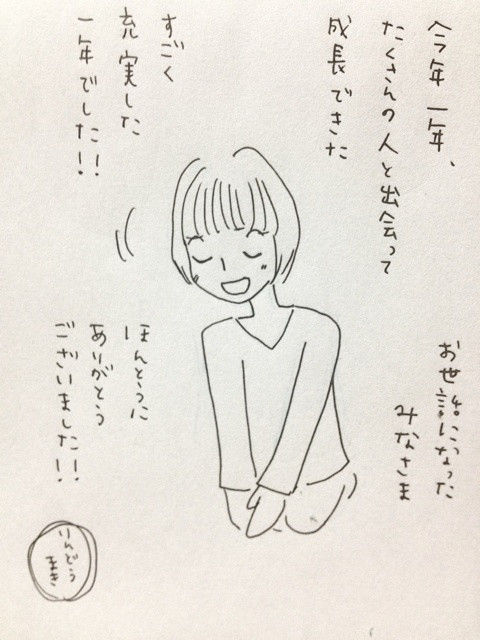 今年一年、
たくさんの人と出会って
成長できた
すごく
充実した
一年でした!!
お世話になった
みなさま
ほんとうに
ありがとう
ございました!!
りんどう
まき